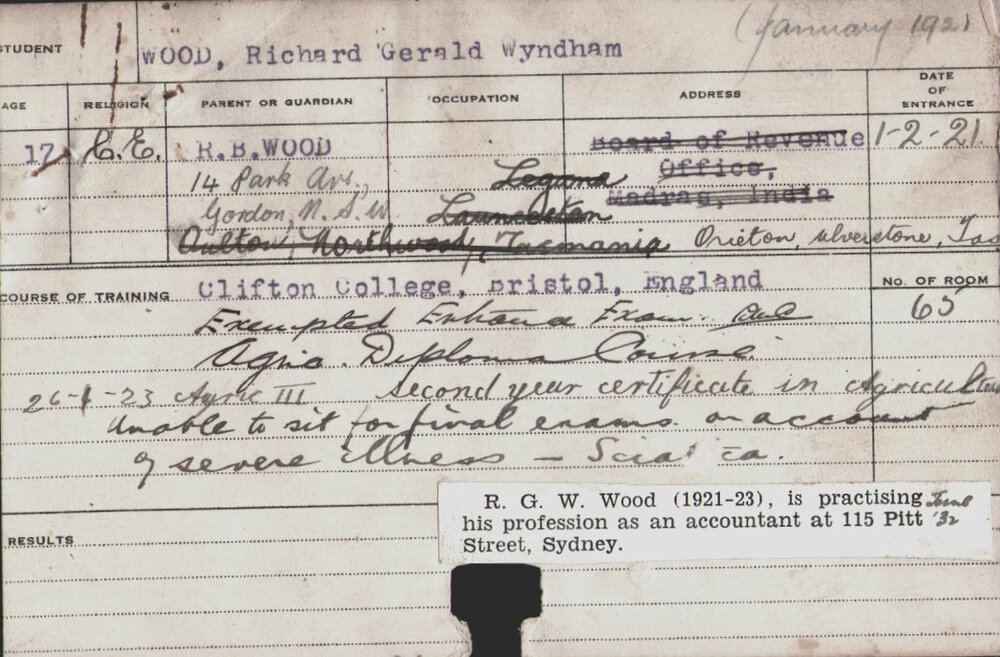 (January 1921
STUDENT WOOD, Richard Gerald Wyndham
AGE RELIGION PARENT OR GUARDIAN OCCUPATION ADDRESS DATE OF ENTRANCE
17 C.E. R.B.WOOD Board of Revenue 1-2-21
14 Park Ave., Laguna Office,
Gordon, N.S.W. Launceston Madras, India
Northwood, Tasmania Orieton, Ulverstone, Tas
COURSE OF TRAINING Clifton College, Bristol, England NO. OF ROOM
Exempted Entrance Exam. 63
Agric. Diploma Course.
26-1-23 Agric III Second year certificate in Agriculture
Unable to sit for final exams. on account
of severe illness – Sciatica.
R. G. W. Wood (1921-23), is practising June
his profession as an accountant at 115 Pitt '32
Street, Sydney.
RESULTS